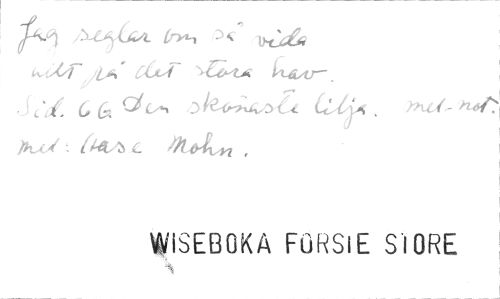 Jag seglar om så vida
vilt på det stora hav.
Sid. 66 Den skönaste lilja. mel-not.
mel: Aase Mohn.
WISEBOKA FORSTE STORE